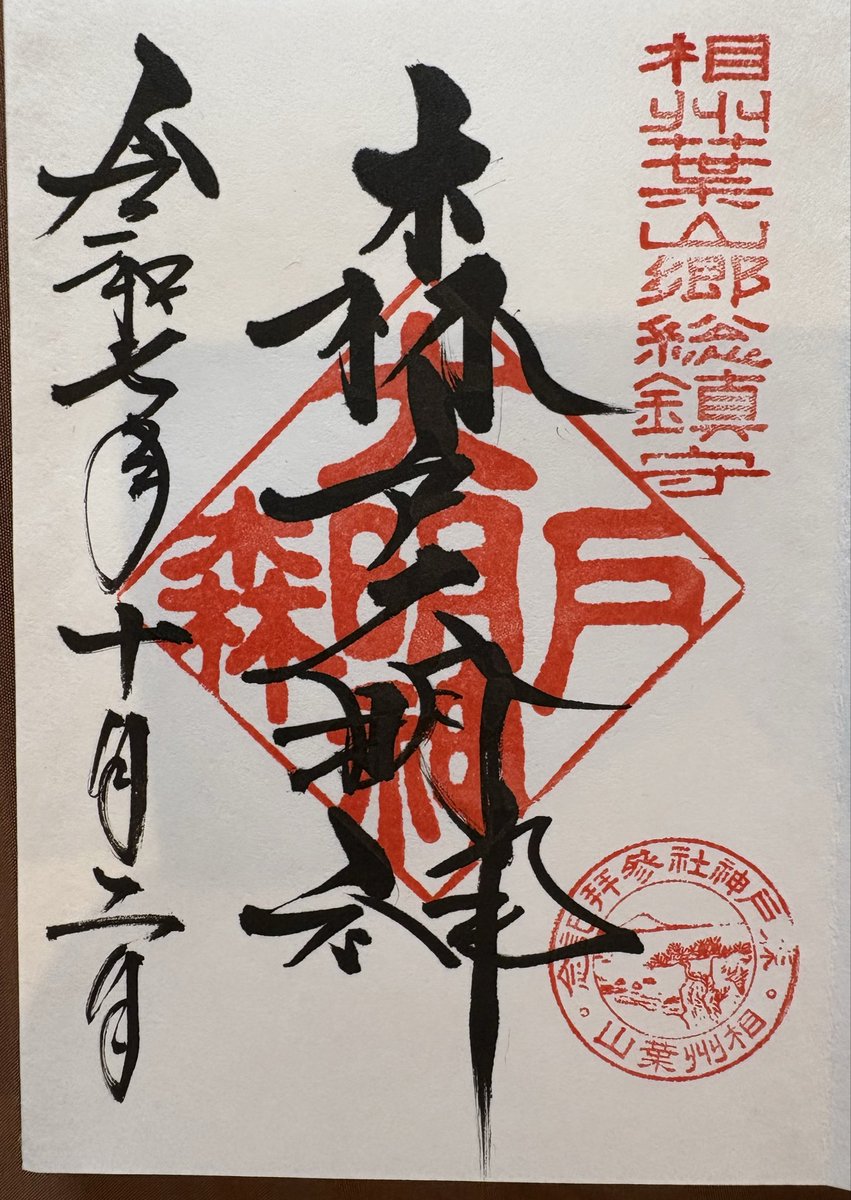 相州葉山郷総鎮守
森戸大明神
戸大明神森
令和七年十月二日
森戸神社参拝記念
相州葉山